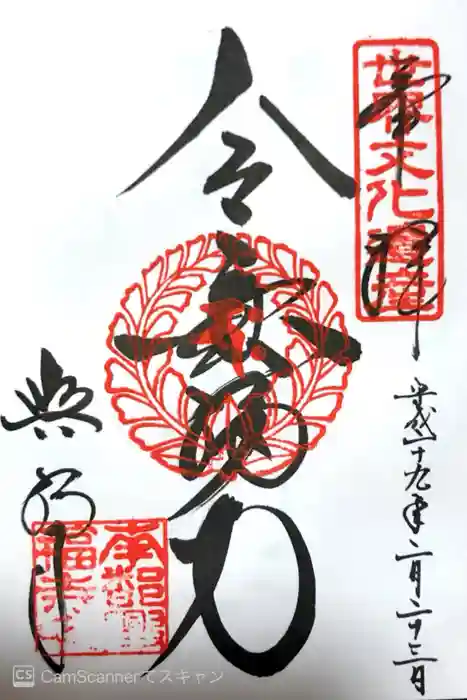 世界文化遺産
奉拝
平成二十九年二月二十三日
令興福力
興福寺
CS CamScannerでスキャン